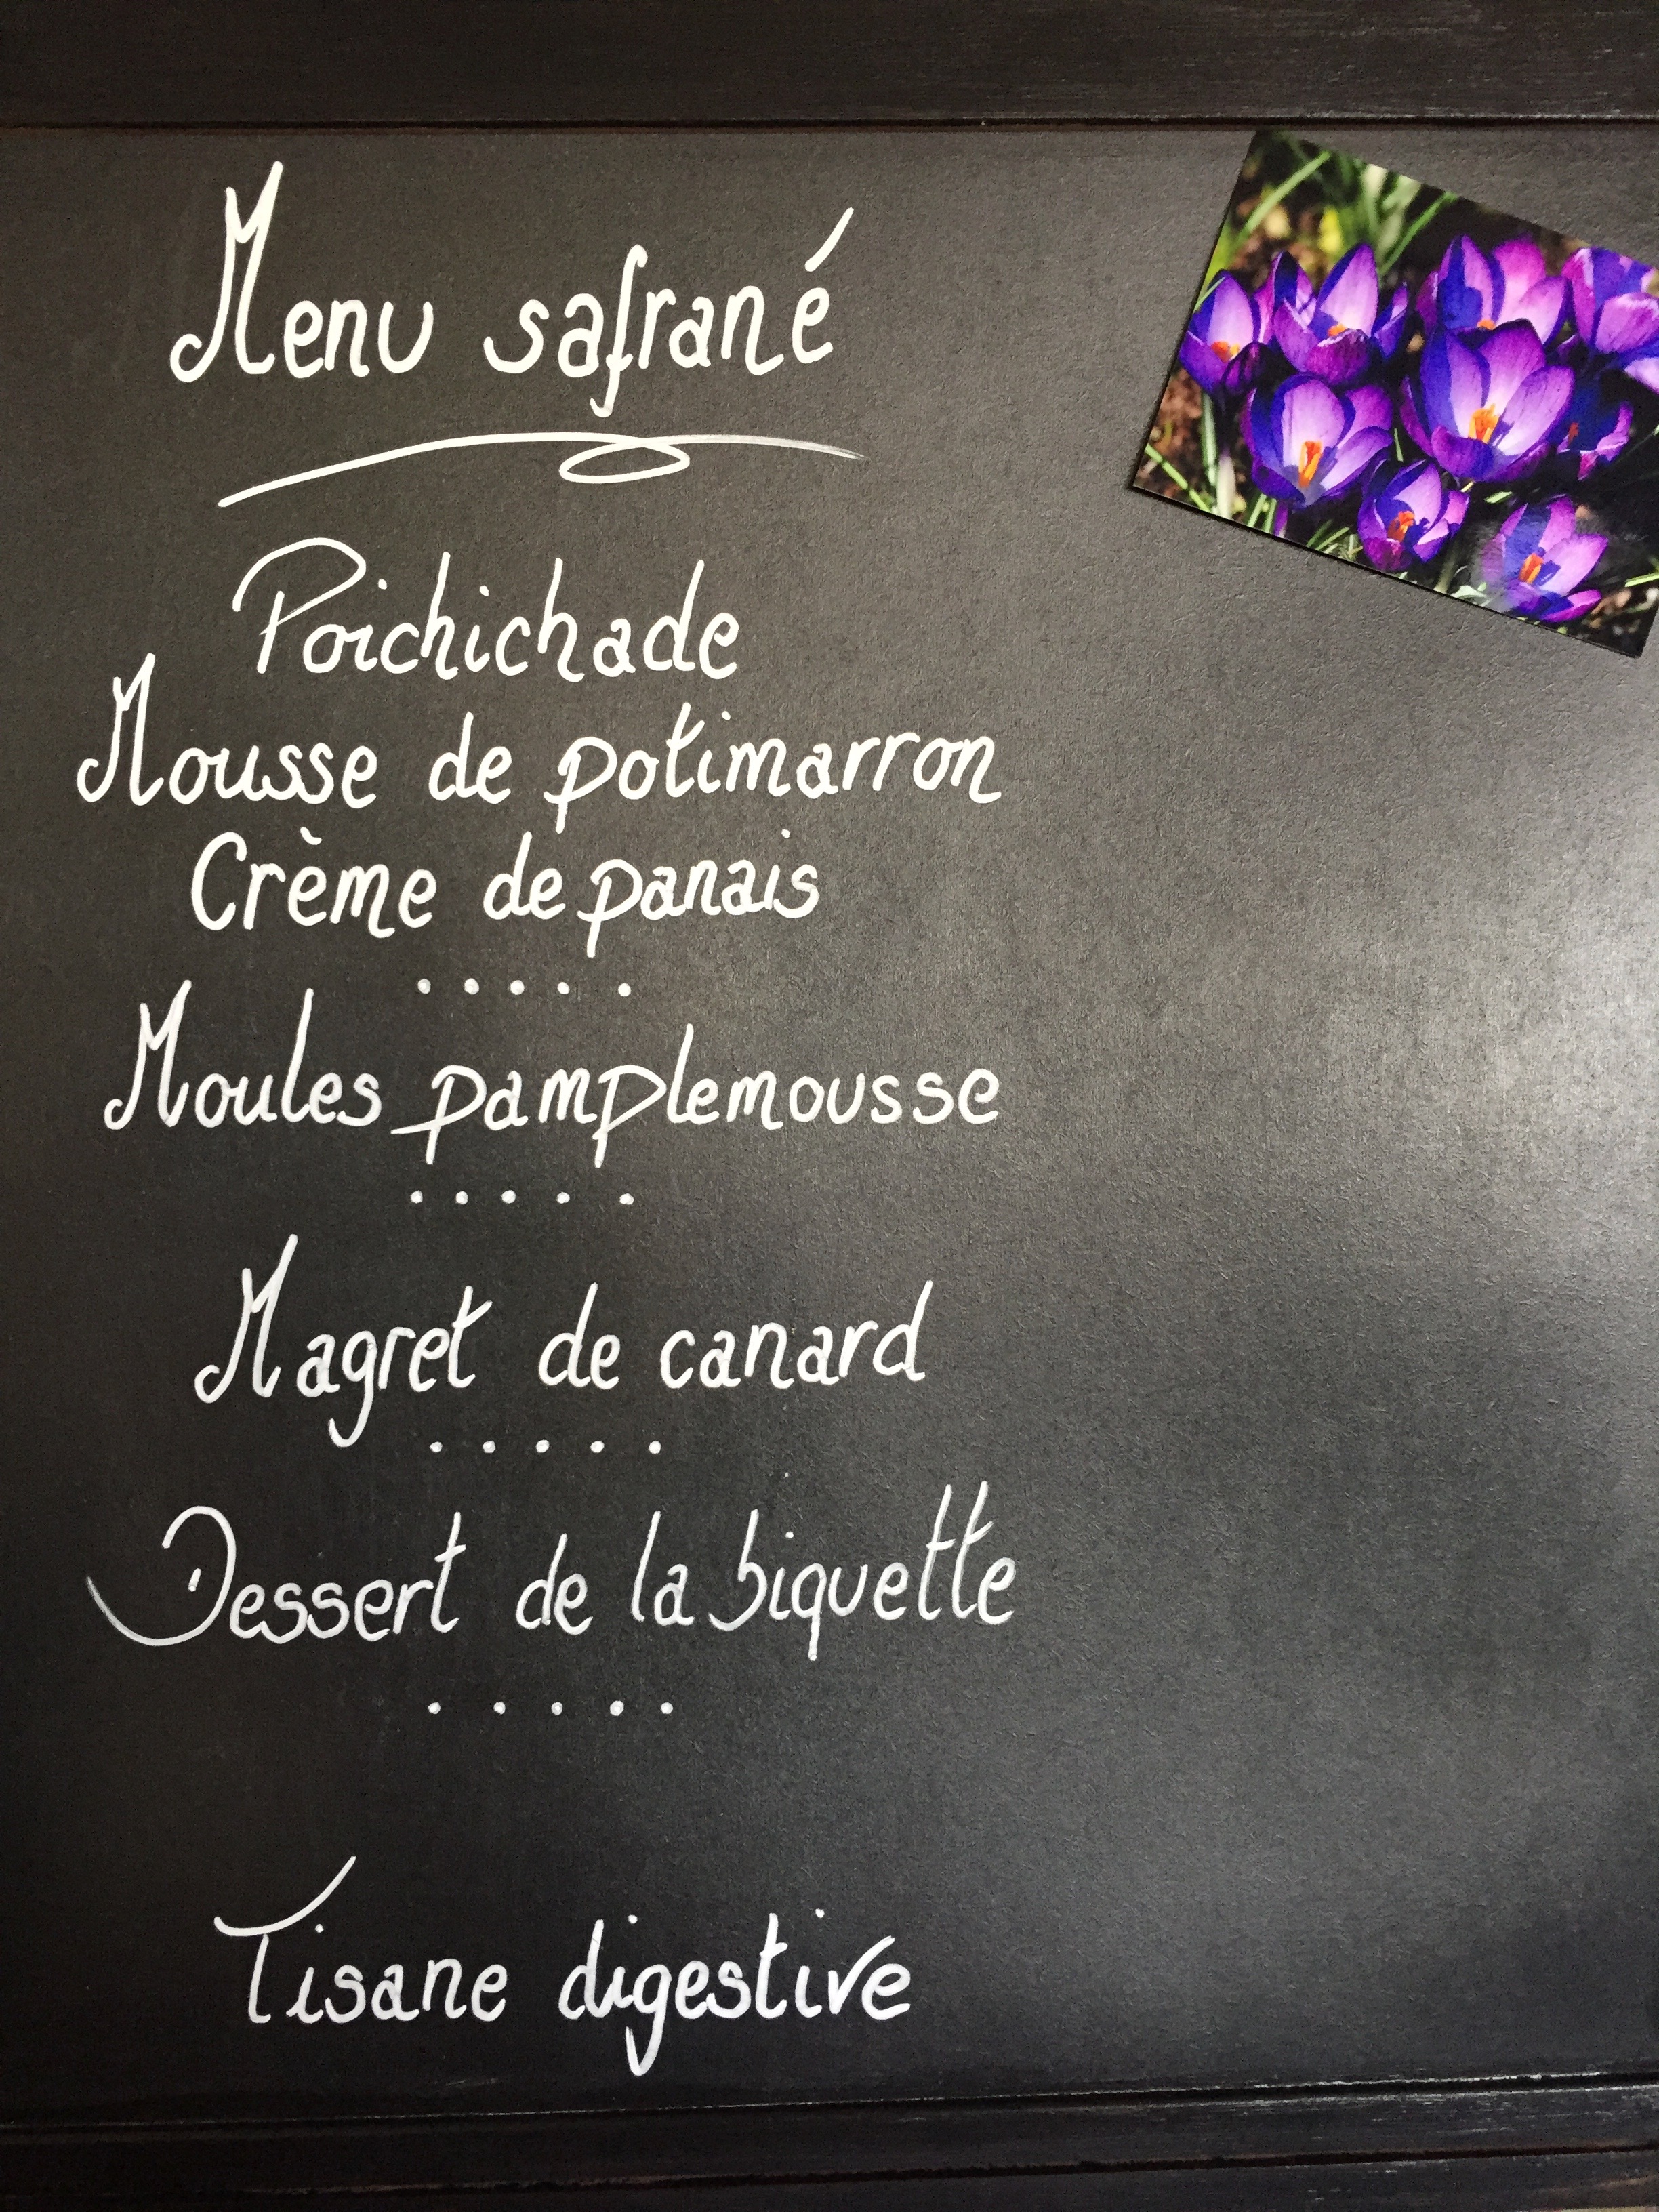 Menu safrané
Poichichade
Mousse de potimarron
Crème de panais
.....
Moules pamplemousse
.....
Magret de canard
.....
Dessert de la biquette
.....
Tisane digestive